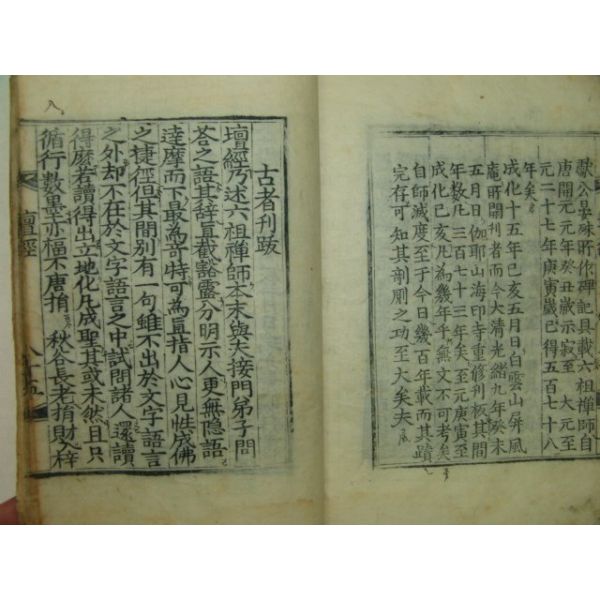 獻公晏殊所作碑記具載六祖禪師自
唐開元元年癸丑歲示寂至 大元至
元二十七年庚寅歲已得五百七十八
年矣
成化十五年己亥五月日白雲山屏風
庵所開刋者而今大清光緖九年癸未
五月日伽耶山海印寺重修刋板其間
年數凡三百七十三年矣至元庚寅至
成化己亥凡為幾年乎無文不可考矣
自師滅度至于今日幾百年載而其蹟
完存可知其剞劂之功至大矣夫
古者刋跋
壇經乃述六祖禪師本末與夫接門弟子問
荅之語其辭直截豁露分明示人更無隱語
達摩而下最為竒特可為直指人心見性成佛
之捷徑但其間別有一句雖不出於文字語言
之外却不在於文字語言之中試問諸人還讀
得麽若讀得出立地化凡成聖其或未然且只
循行數墨亦福不唐捐 秋谷長老捐財入梓
壇經
八十五